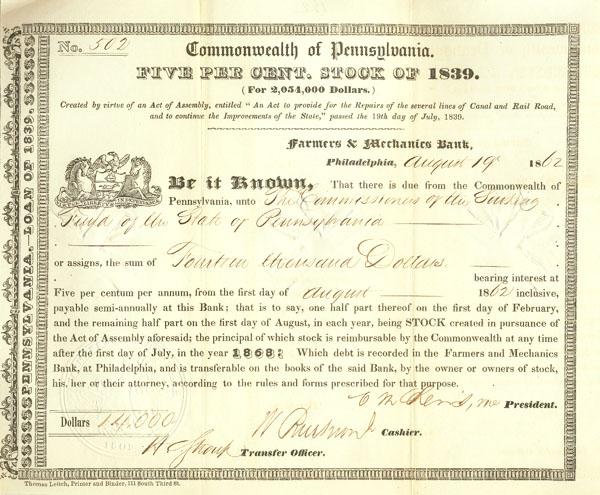 PENNSYLVANIA.—LOAN OF 1839.
No. 502
Commonwealth of Pennsylvania.
FIVE PER CENT. STOCK OF 1839.
(For 2,054,000 Dollars.)
Created by virtue of an Act of Assembly, entitled "An Act to provide for the Repairs of the several lines of Canal and Rail Road,
and to continue the Improvements of the State," passed the 19th day of July, 1839.
Farmers & Mechanics Bank,
Philadelphia, August 19 1862
Be it Known, That there is due from the Commonwealth of
Pennsylvania, unto The Commissioners of the Sinking
Fund of the State of Pennsylvania
or assigns, the sum of Fourteen thousand Dollars
bearing interest at
Five per centum per annum, from the first day of August 1862 inclusive,
payable semi-annually at this Bank; that is to say, one half part thereof on the first day of February,
and the remaining half part on the first day of August, in each year, being STOCK created in pursuance of
the Act of Assembly aforesaid; the principal of which stock is reimbursable by the Commonwealth at any time
after the first day of July, in the year 1868: Which debt is recorded in the Farmers and Mechanics
Bank, at Philadelphia, and is transferable on the books of the said Bank, by the owner or owners of stock,
his, her or their attorney, according to the rules and forms prescribed for that purpose.
President.
Dollars 14,000
Cashier.
Transfer Officer.
Thomas Leitch, Printer and Binder, 111 South Third St.